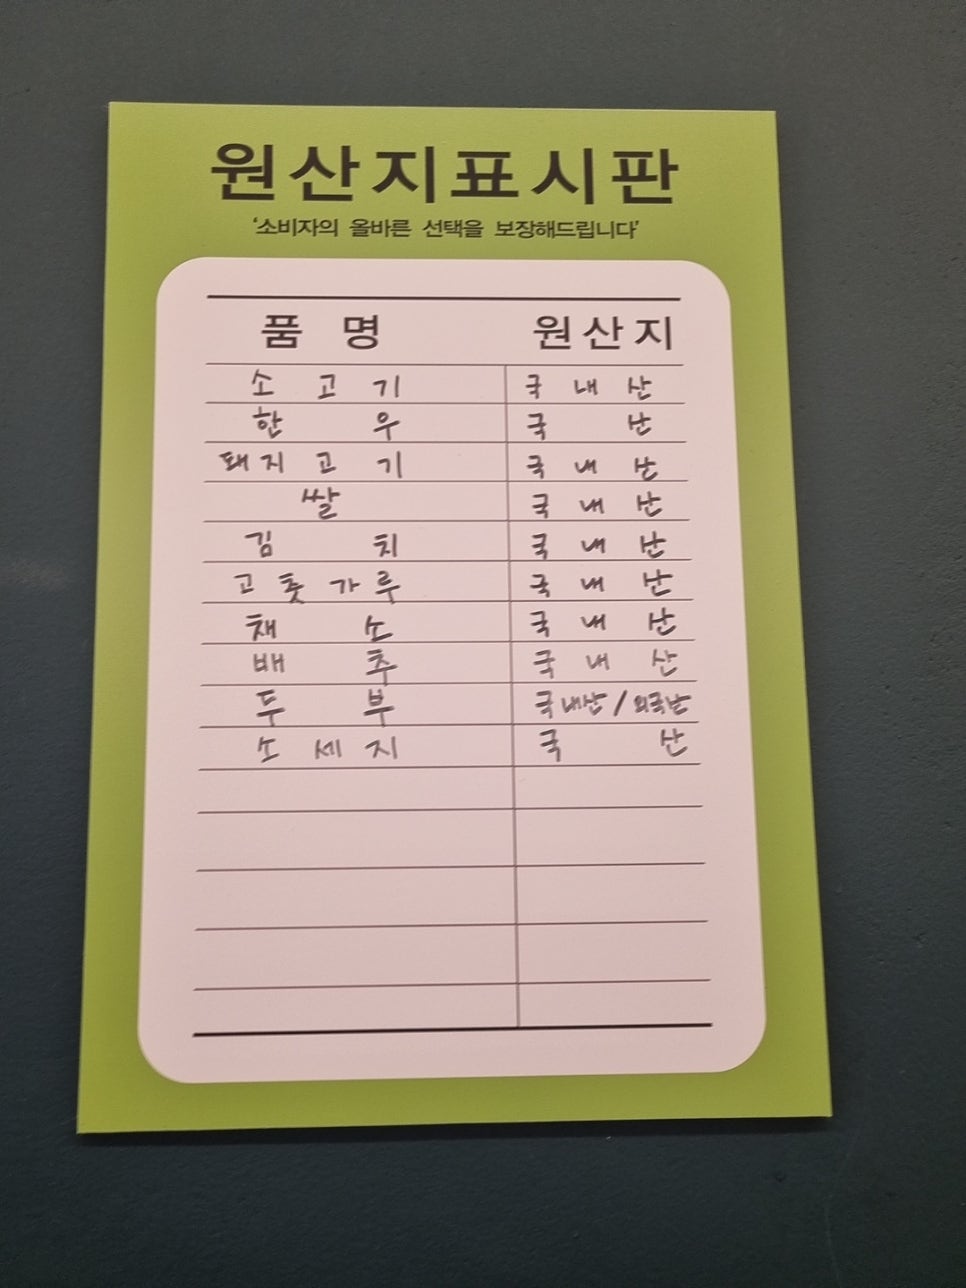 원산지표시판
'소비자의 올바른 선택을 보장해드립니다'
품 명 원산지
소 고 기 국 내 산
한 우 국 산
돼지 고 기 국 내 산
쌀 국 내 산
김 치 국 내 산
고 춧 가 루 국 내 산
채 소 국 내 산
배 추 국 내 산
두 부 국내산 / 외국산
소 세 지 국 산